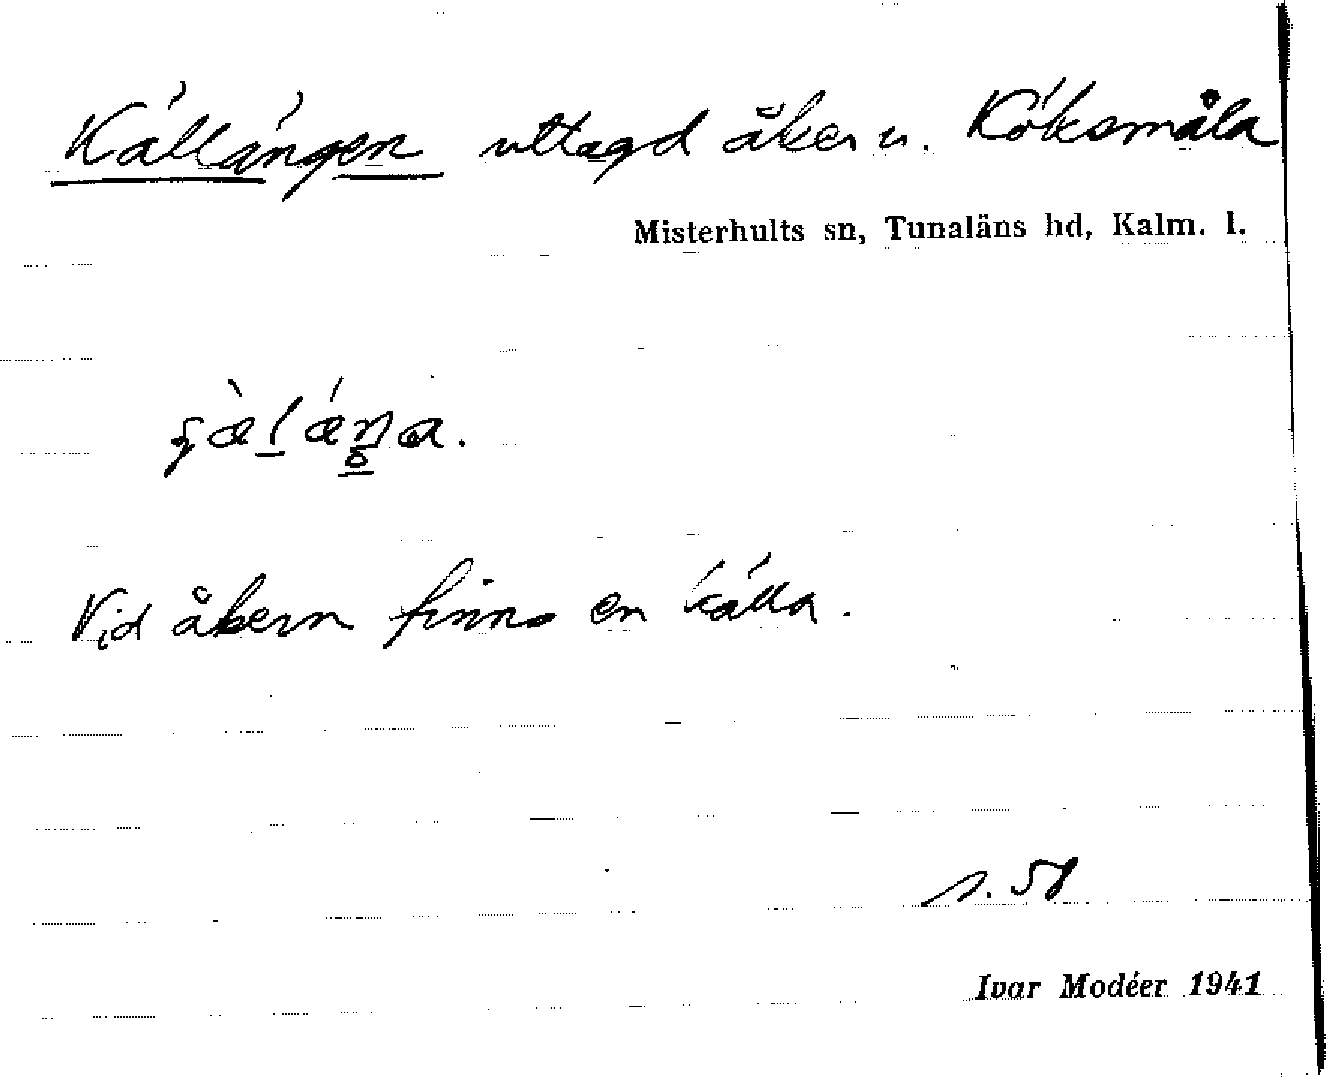 Källängen uttagd åker u. Köksmåla
Misterhults sn, Tunaläns hd, Kalm. l.
Vid åkern finns en källa.
s. 58
Ivar Modéer 1941